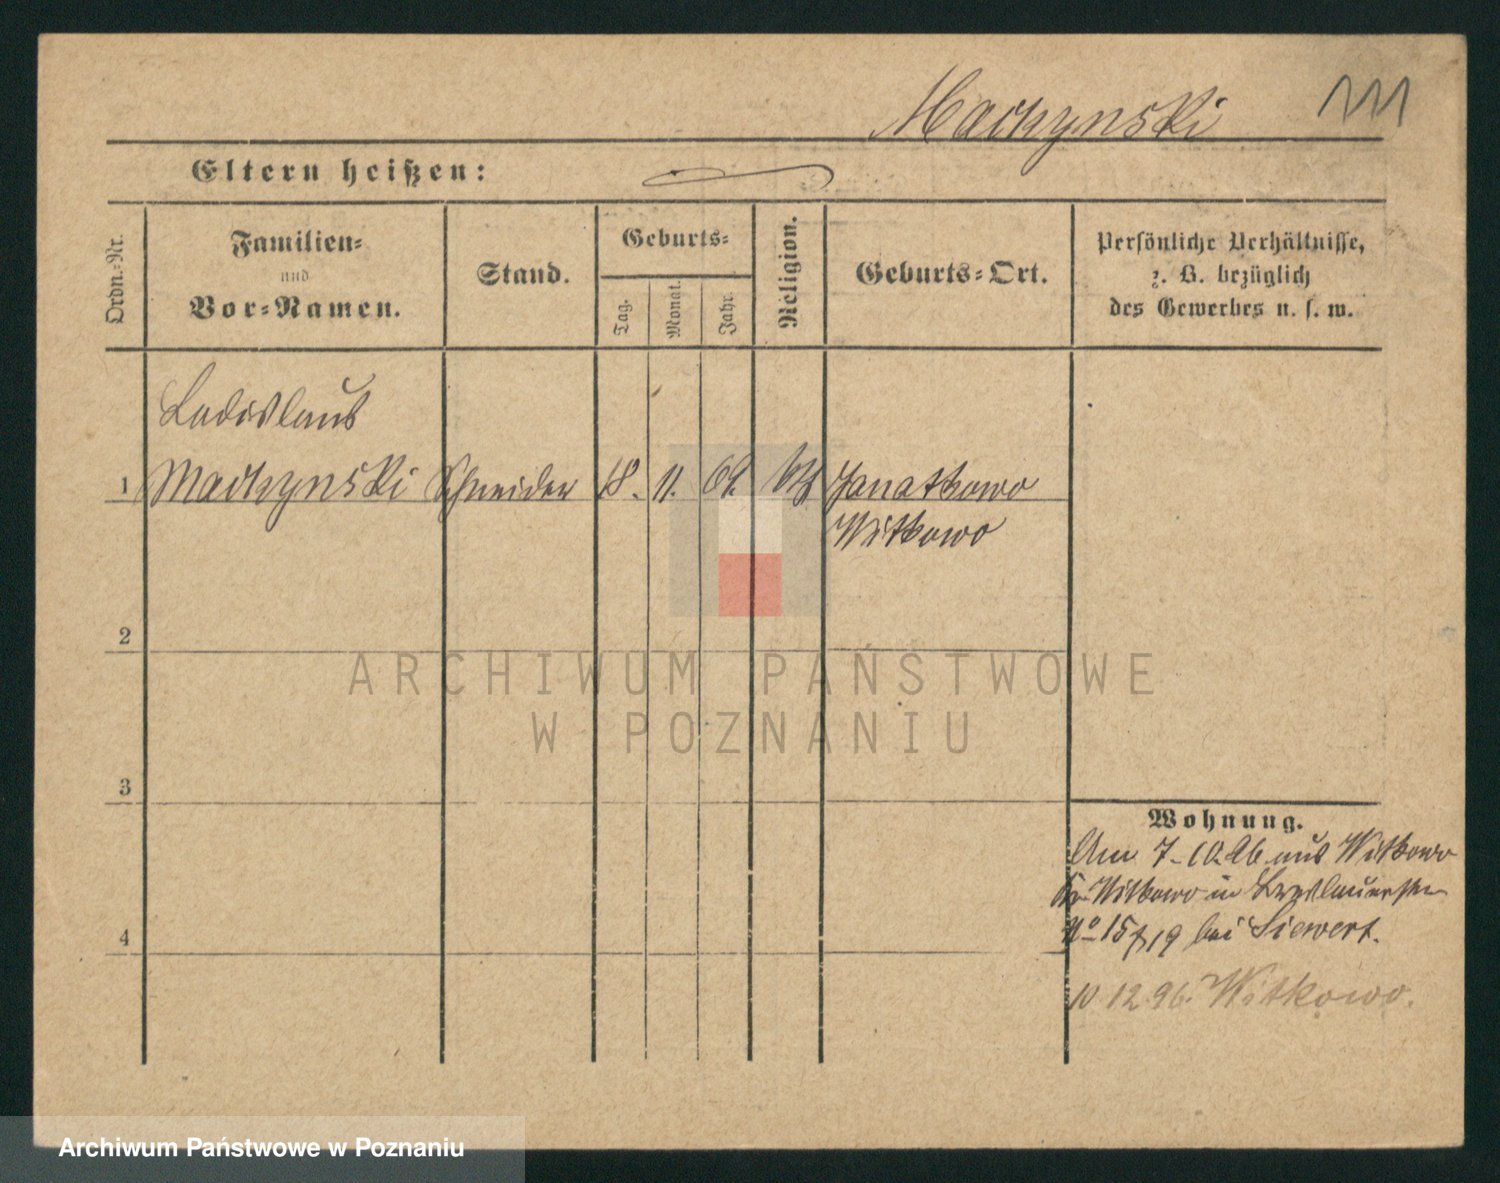 Machynski
111
Eltern heißen:
Ordn.-Nr.
Familien-
und
Vor-Namen.
Stand.
Geburts-
Tag.
Monat.
Jahr.
Religion.
Geburts-Ort.
Persönliche Verhältnisse,
z. B. bezüglich
des Gewerbes u. s. w.
Ladislaus
1 Machynski Schneider 18. 11. Kth Janatkowo
Witkowo
2
ARCHIWUM PAŃSTWOWE
W POZNANIU
3
Wohnung.
Am 7-10. 96 aus Witkowo
Kr. Witkowo in Breslauerstr
No 15/19 bei Siewert.
4
10 12 96. Witkowo.
Archiwum Państwowe w Poznaniu